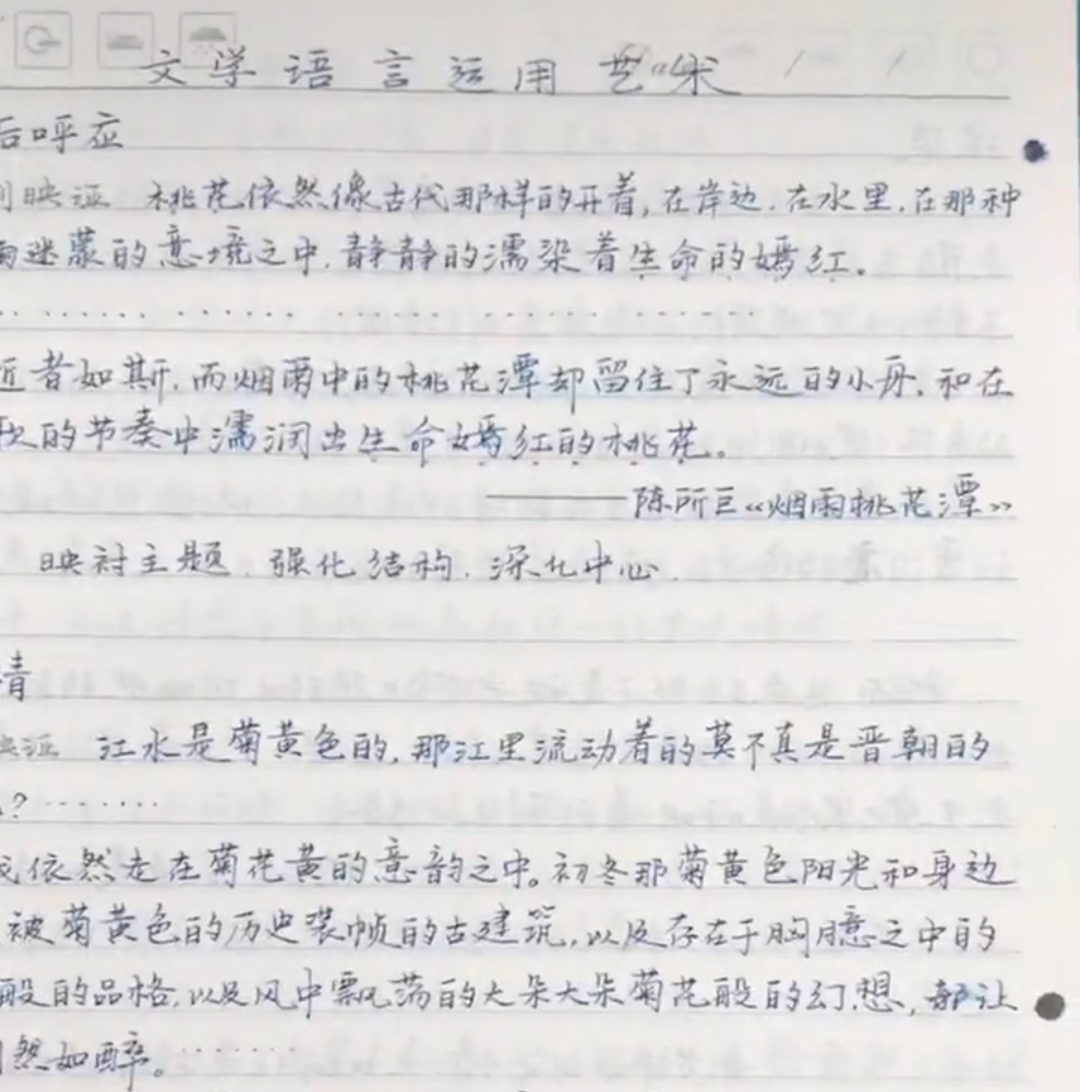 文学语言运用艺术
后呼应
例映证 桃花依然像古代那样的开着，在岸边.在水里.在那种
雨迷蒙的意境之中.静静的濡染着生命的嫣红。
................................
近者如斯.而烟雨中的桃花潭却留住了永远的小舟.和在
的节奏中濡润出生命嫣红的桃花。
——陈所巨《烟雨桃花潭》
映衬主题.强化结构.深化中心.
情
映证 江水是菊黄色的,那江里流动着的莫不真是晋朝的
?·······
依然走在菊花黄的意韵之中。初冬那菊黄色阳光和身边
被菊黄色的历史装帧的古建筑,以及存在于胸臆之中的
般的品格,以及风中飘荡的大朵大朵菊花般的幻想,都让
然如醉。·······